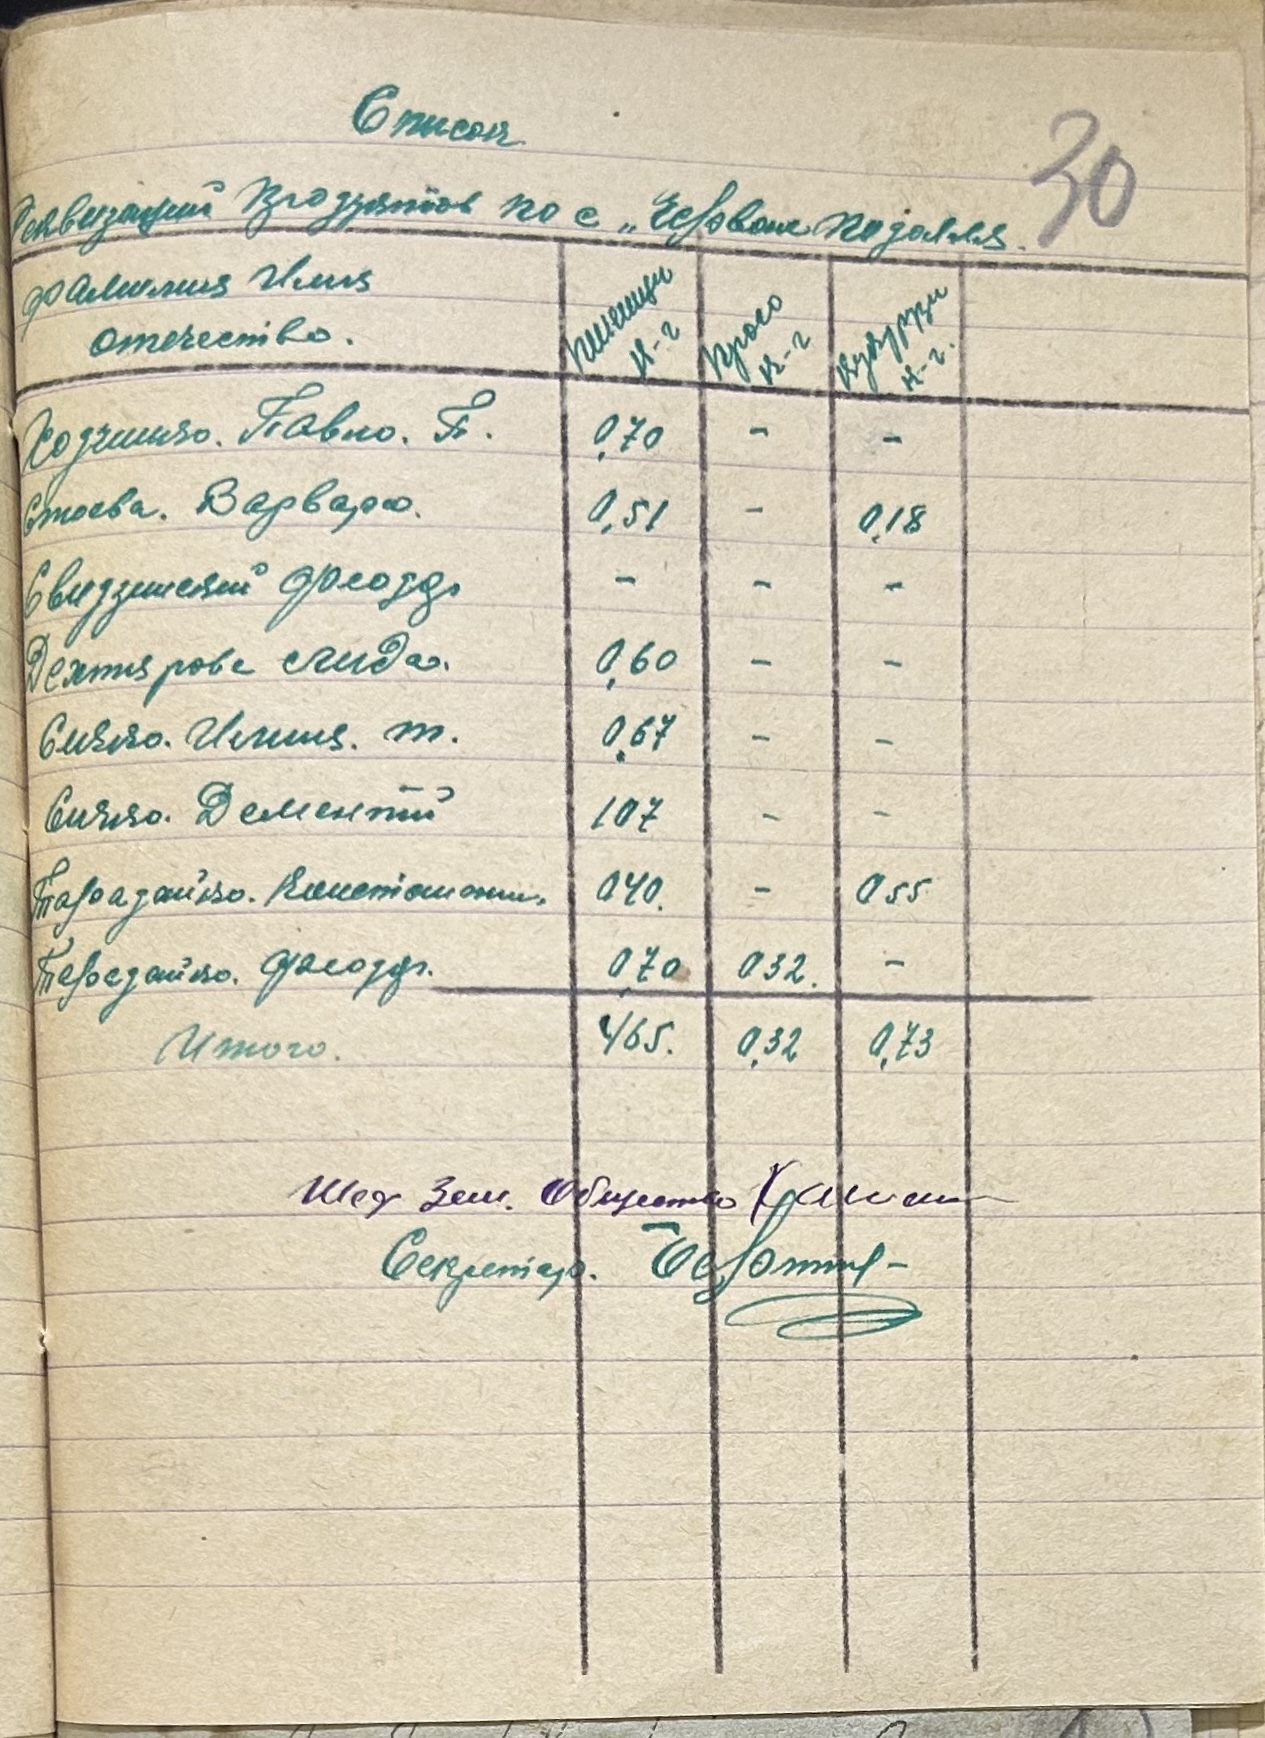 Список
30
Реквизаций продуктов по с „Червоне подолля.
Фамилия Имя отечество. Пшеници к-г Просо к-г Кукурузи к-г.
Ходченко. Павло. П. 0,70 - -
Стоева. Варвара. 0,51 - 0,18
Свидзинский Феодор - - -
Дехтярова Лида. 0,60 - -
Сизко. Илия. т. 0,67 - -
Сизко. Дементий 107 - -
Тарадайко. Констонтин. 040. - 055
Тарадайко. Феодор. 0,70 032. -
Итого. 465. 0,32 0,73
Зем. Общества
Секретарь.